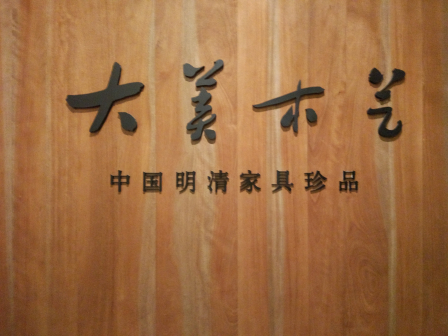 大美木艺
中国明清家具珍品